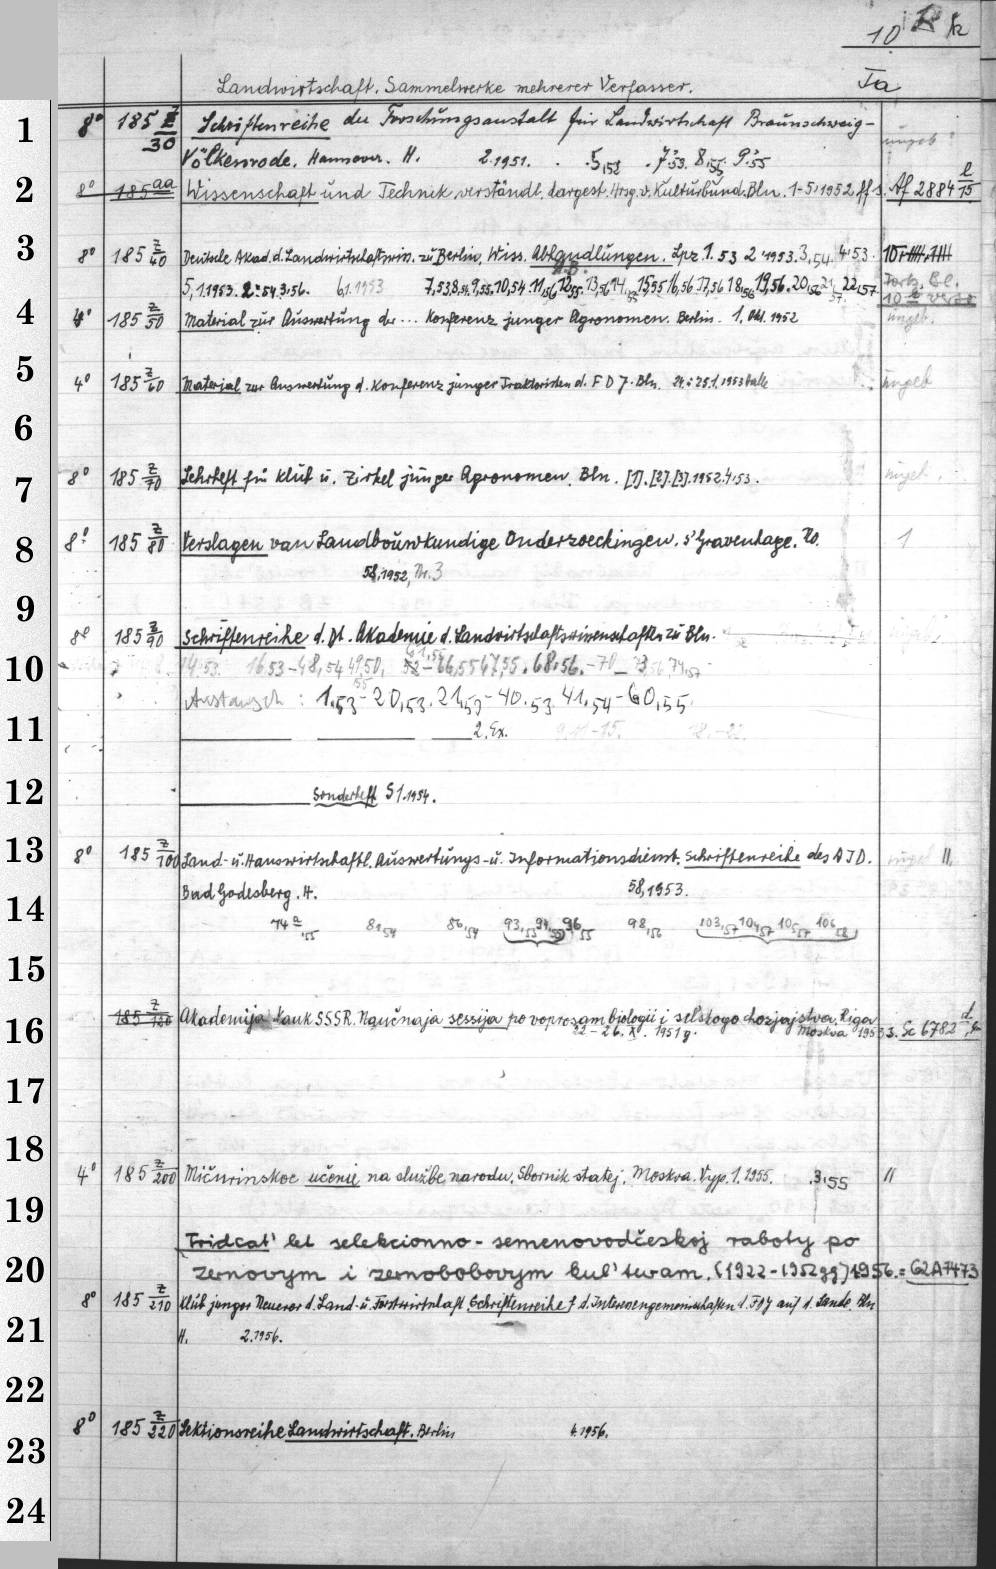 10 R k
Landwirtschaft. Sammelwerke mehrerer Verfasser. Ta
1 8° 185 Z/30 Schriftenreihe der Forschungsanstalt für Landwirtschaft Braunschweig- ungeb.
Völkenrode. Hannover. H. 2.1951. 5,52 7,53. 8,55. 9,55
2 8° 185 aa Wissenschaft und Technik verständl. dargest. Hrsg. v. Kulturbund. Bln. 1-5,1952 ff s. Af 2884 l/15
3 8° 185 Z/40 Deutsche Akad. d. Landwirtschaftswiss. zu Berlin. Wiss. Abhandlungen. Lpz. 1.53 2.1953. 3,54. 4.53.
5,1.1953. 2.54. 3.56. 6.1.1953 7,53. 8,54. 9,55. 10,54. 11,56 12,55. 13,56 14, 15,55 16,56 17,56 18,56 19,56. 20,56 21,57. 22,57
4 4° 185 Z/50 Material zur Auswertung der ... Konferenz junger Agronomen. Berlin. 1. Okt. 1952 ungeb.
5 4° 185 Z/60 Material zur Auswertung d. Konferenz junger Traktoristen d. FDJ. Bln. 24.-25.1.1953 Halle ungeb
6
7 8° 185 Z/70 Lehrheft für Klub u. Zirkel junger Agronomen. Bln. [1]. [2]. [3]. 1952. 4.53. ungeb.
8 8° 185 Z/80 Verslagen van Landbouwkundige Onderzoeckingen. s'Gravenhage. No. 1
58,1952, Nr. 3
9 8° 185 Z/90 Schriftenreihe d. Dt. Akademie d. Landwirtschaftswissenschaften zu Bln.
10 14.53. 16.53-48,54 49,50, 52-66,55 67,55. 68,56.-70- 74,57
Austausch: 1,53-20,53. 21,53-40.53 41,54-60,55.
11 2. Ex. 9.11-15. 18.-22.
12 Sonderheft S1.1954.
13 8° 185 Z/100 Land- u. Hauswirtschaftl. Auswertungs- u. Informationsdienst. Schriftenreihe des AID. ungeb II.
Bad Godesberg. H. 58,1953.
14 74a,55 81,54 86,54 93,55 94,55 96,55 98,56 103,57 104,57 105,57 106,58
15
16 185 Z/120 Akademija Nauk SSSR. Naučnaja sessija po voprosam biologii i selskogo hozjajstva. Riga
22-26. X. 1951 g. Moskva 1953 s. Sc 6782 d
17
18 4° 185 Z/200 Mičurinskoe učenie na službe narodu. Sbornik statej. Moskva. Vyp. 1. 1955. 3,55 II
19 Tridcat' let selekcionno-semenovodčeskoj raboty po
20 zernovym i zernobobovym kul'turam. (1922-1952 gg) 1956. = G2A7473
8° 185 Z/210 Klub junger Neuerer d. Land- u. Forstwirtschaft Schriftenreihe f. d. Interessengemeinschaften d. FDJ auf d. Lande. Bln
21 H. 2.1956.
22
23 8° 185 Z/220 Lektionsreihe Landwirtschaft. Berlin 4.1956.
24